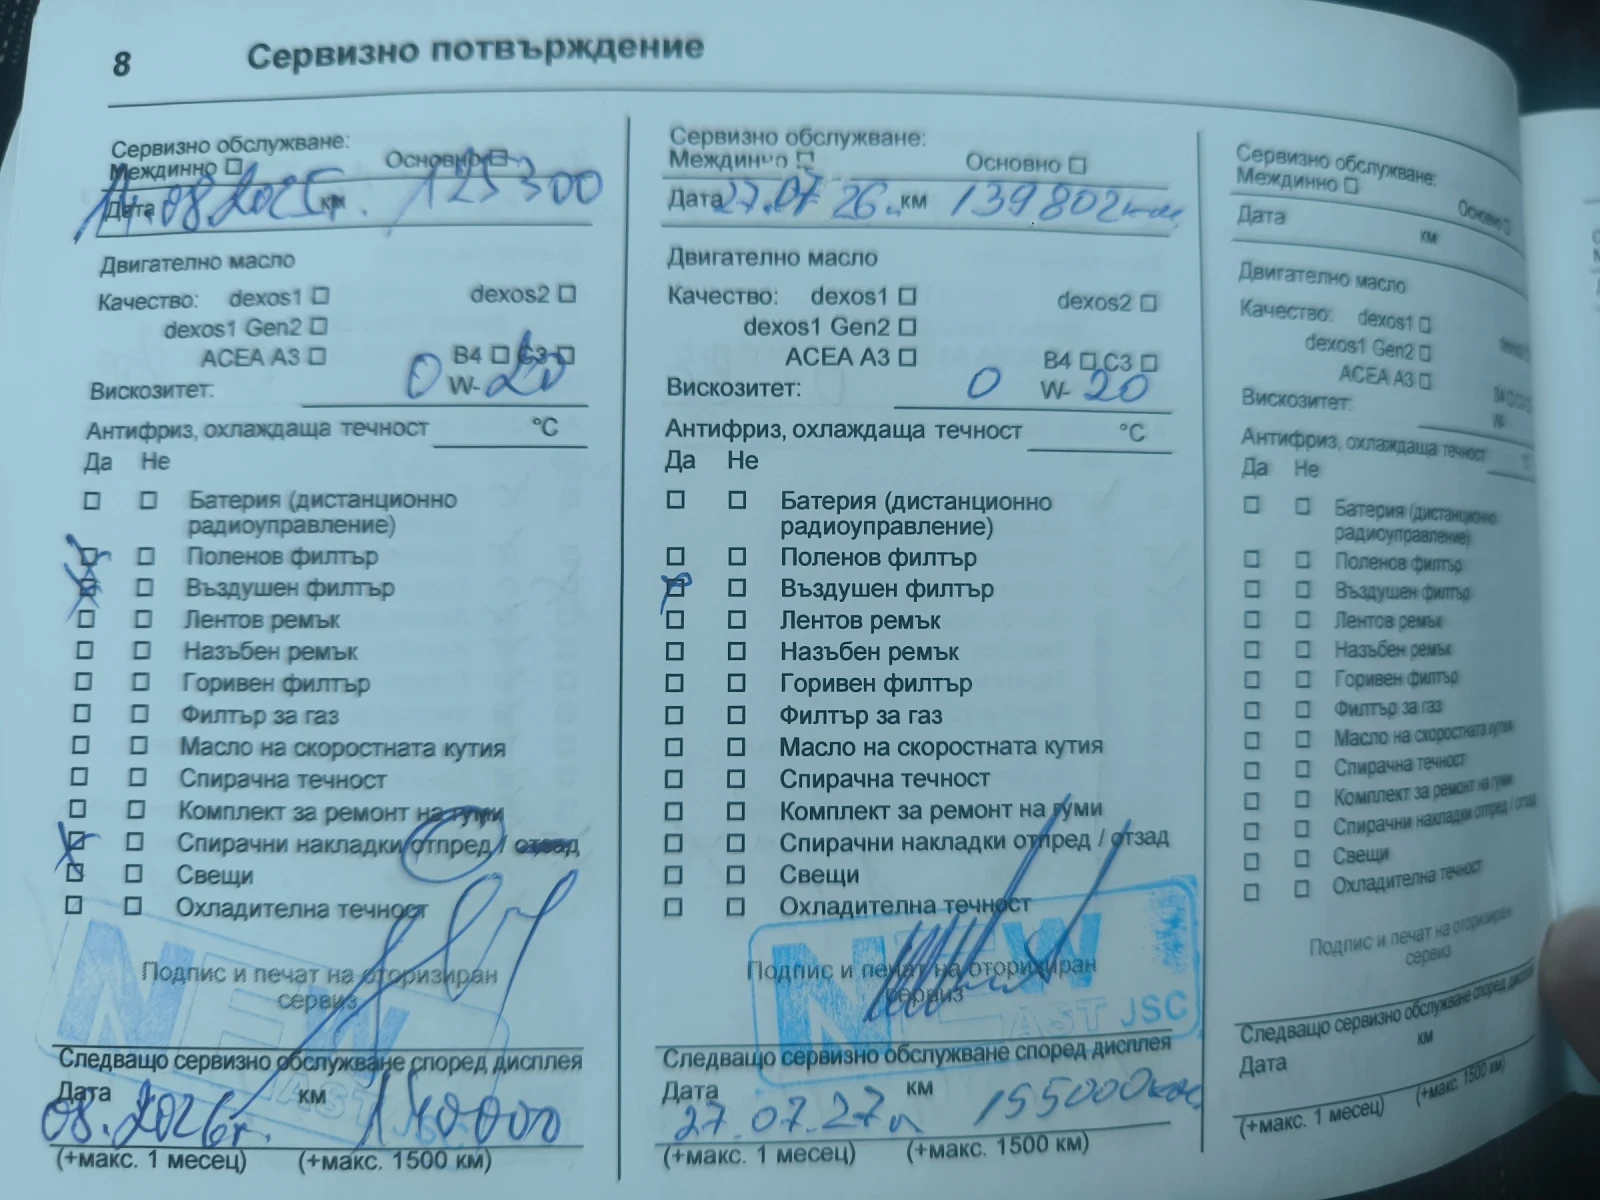 8
Сервизно потвърждение
Сервизно обслужване:
Междинно □ Основно □
Дата 14.08.2025г. км 125300
Двигателно масло
Качество: dexos1 □ dexos2 □
dexos1 Gen2 □
ACEA A3 □ B4 □ C3 □
Вискозитет: 0 W- 20
Антифриз, охлаждаща течност °C
Да Не
Батерия (дистанционно
радиоуправление)
Поленов филтър
Въздушен филтър
Лентов ремък
Назъбен ремък
Горивен филтър
Филтър за газ
Масло на скоростната кутия
Спирачна течност
Комплект за ремонт на гуми
Спирачни накладки отпред / отзад
Свещи
Охладителна течност
Подпис и печат на оторизиран
сервиз
NEW
Следващо сервизно обслужване според дисплея
Дата км
08.2026г. 140000
(+макс. 1 месец) (+макс. 1500 км)
Сервизно обслужване:
Междинно □ Основно □
Дата 27.07 26 км 139802км
Двигателно масло
Качество: dexos1 □ dexos2 □
dexos1 Gen2 □
ACEA A3 □ B4 □ C3 □
Вискозитет: 0 W- 20
Антифриз, охлаждаща течност °C
Да Не
Батерия (дистанционно
радиоуправление)
Поленов филтър
Въздушен филтър
Лентов ремък
Назъбен ремък
Горивен филтър
Филтър за газ
Масло на скоростната кутия
Спирачна течност
Комплект за ремонт на гуми
Спирачни накладки отпред / отзад
Свещи
Охладителна течност
Подпис и печат на оторизиран
сервиз
NEW
AST JSC
Следващо сервизно обслужване според дисплея
Дата км
27.07.27 155000км
(+макс. 1 месец) (+макс. 1500 км)
Сервизно обслужване:
Междинно □ Основно □
Дата км
Двигателно масло
Качество: dexos1 □
dexos1 Gen2 □
ACEA A3 □
Вискозитет:
Антифриз, охлаждаща течност
Да Не
Батерия (дистанционно
радиоуправление)
Поленов филтър
Въздушен филтър
Лентов ремък
Назъбен ремък
Горивен филтър
Филтър за газ
Масло на скоростната кутия
Спирачна течност
Комплект за ремонт на гуми
Спирачни накладки отпред / отзад
Свещи
Охладителна течност
Подпис и печат на оторизиран
сервиз
Следващо сервизно обслужване според дисплея
Дата км
(+макс. 1 месец) (+макс. 1500 км)